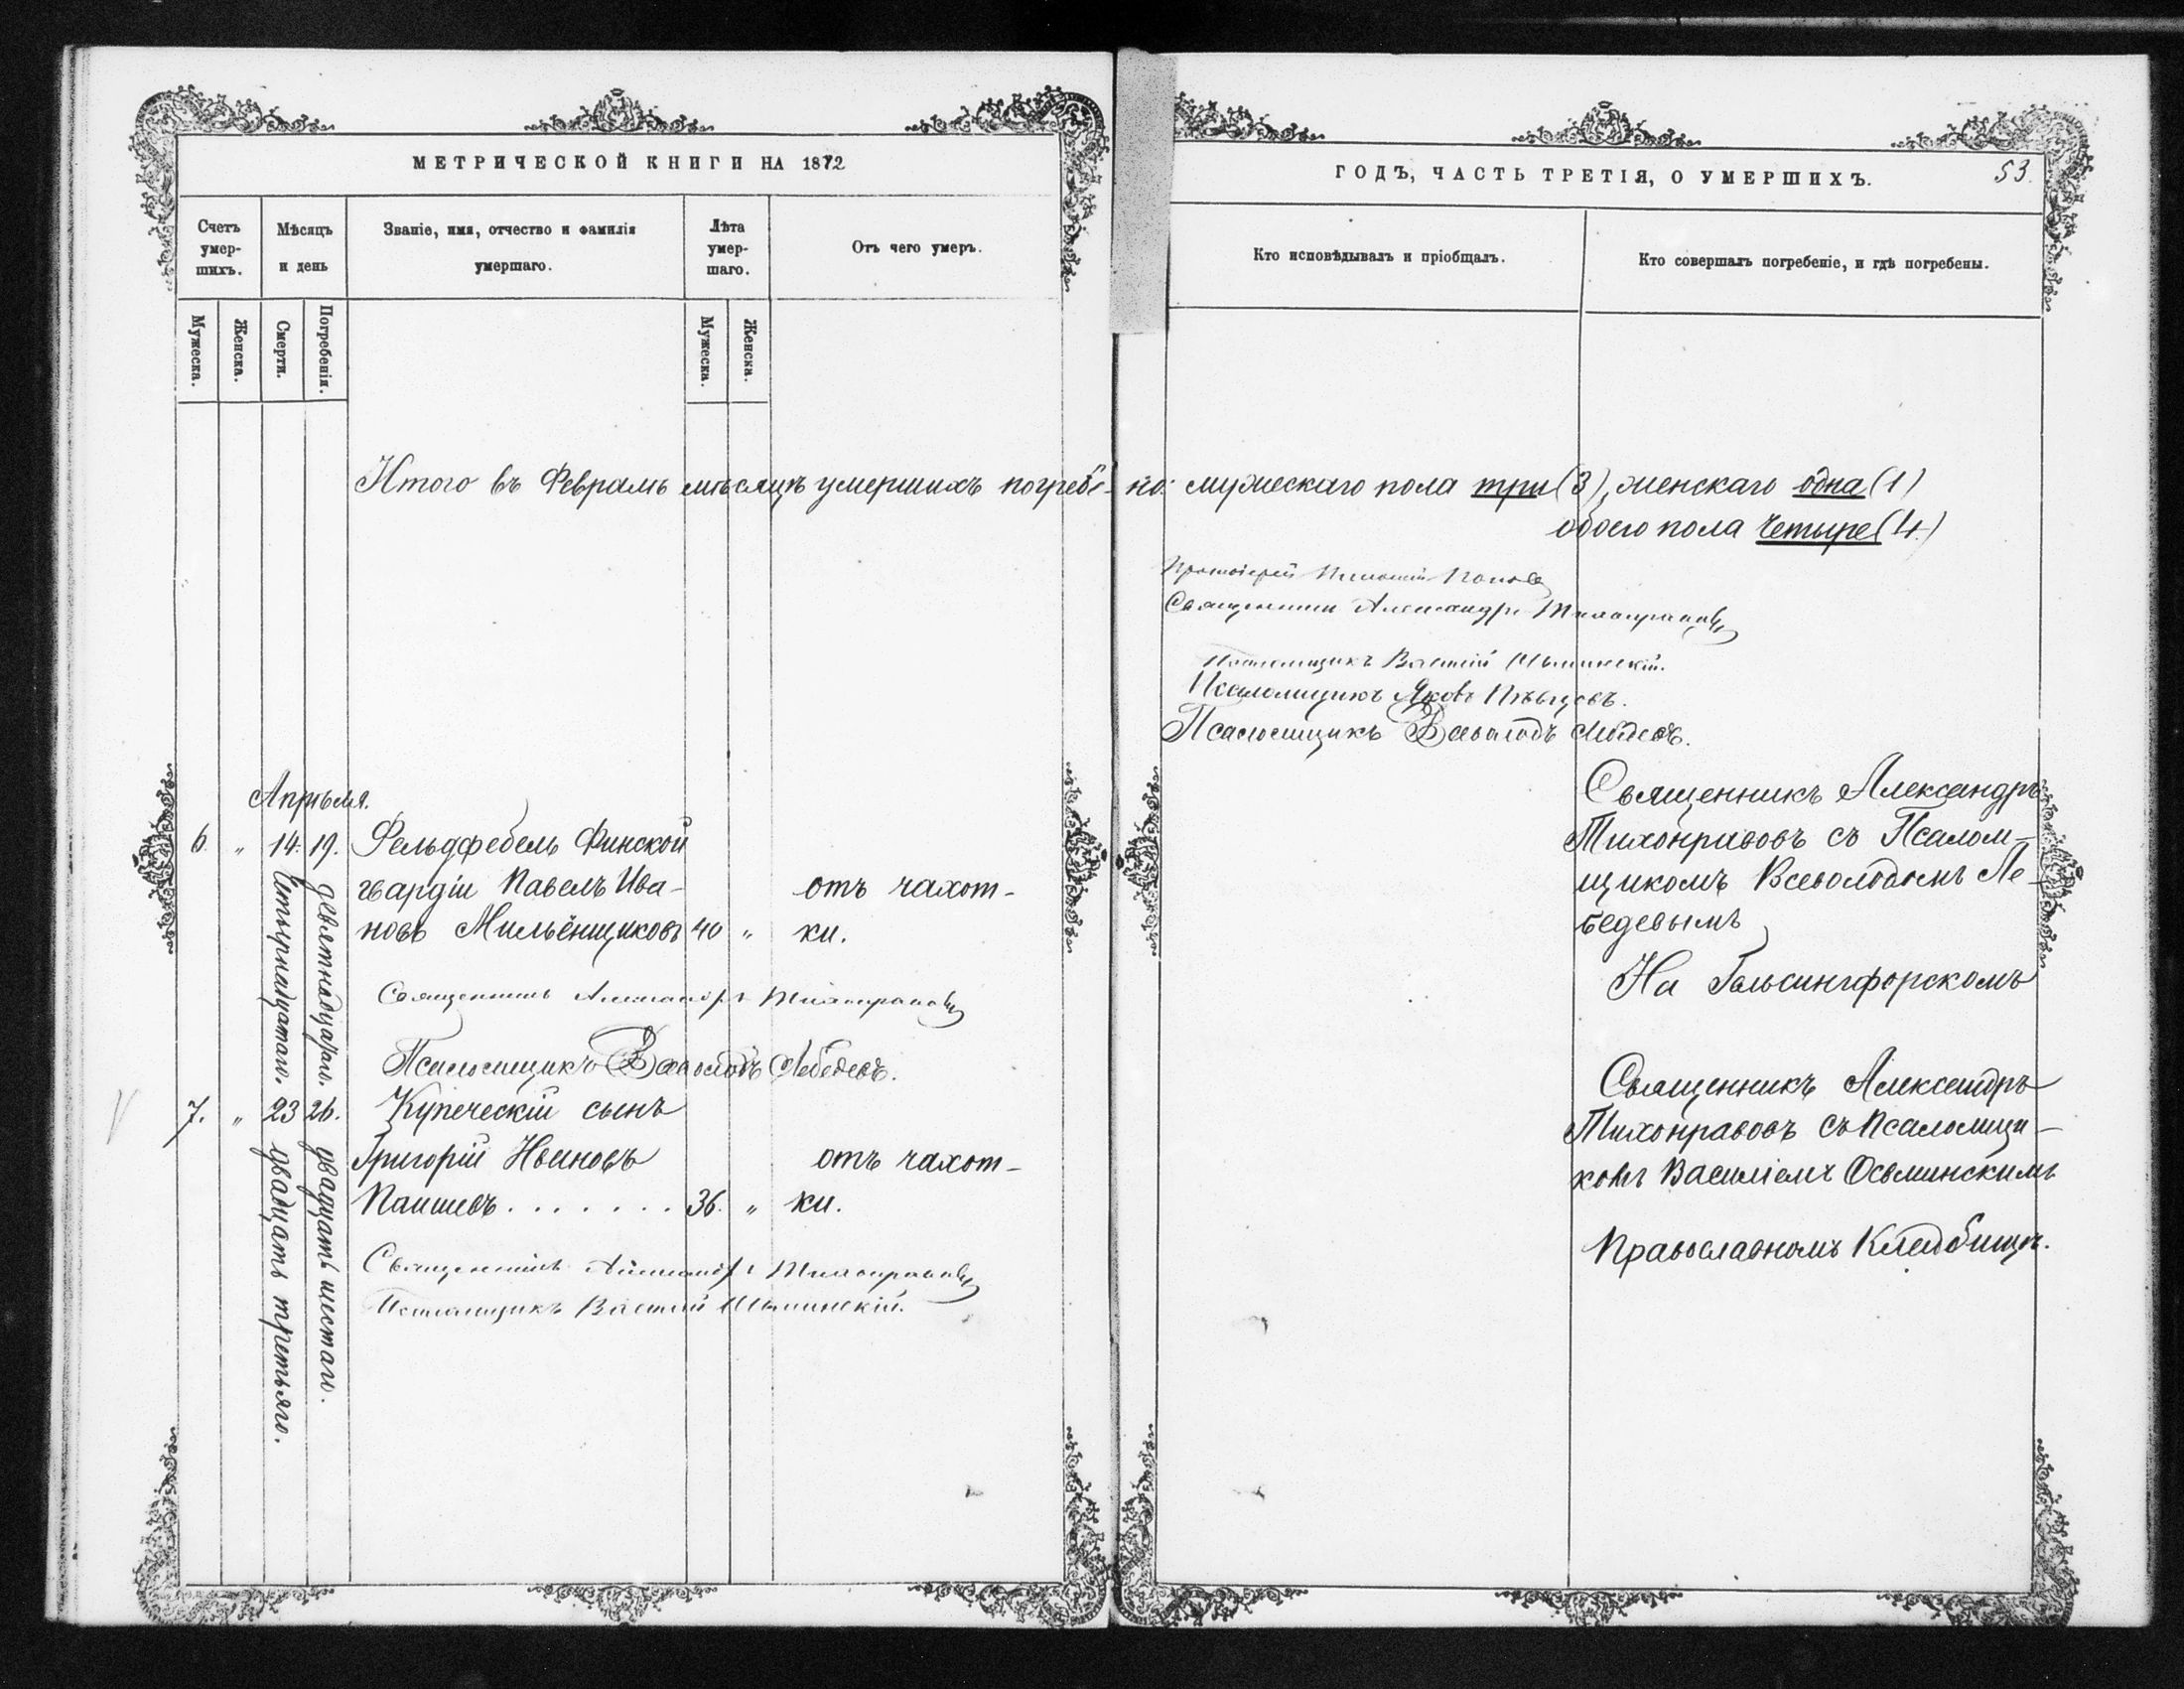 МЕТРИЧЕСКОЙ КНИГИ НА 1872
Счетъ умер-шихъ.
Мѣсяцъ и день
Званіе, имя, отчество и фамилія умершаго.
Лѣта умер-шаго.
Отъ чего умеръ.
Мужеска.
Женска.
Смерти.
Погребенія.
Мужеска.
Женска.
ГОДЪ, ЧАСТЬ ТРЕТІЯ, О УМЕРШИХЪ.
53.
Кто исповѣдывалъ и пріобщалъ.
Кто совершалъ погребеніе, и гдѣ погребены.
Итого въ Февралѣ мѣсяцѣ умершихъ погребе-но: мужескаго пола три (3), женскаго одна (1)
обоего пола четыре (4.)
Протоіерей Поповъ
Священникъ Александръ Тихонравовъ
Псаломщикъ Василій Осьминскій.
Псаломщикъ Яковъ Пѣвцовъ.
Псаломщикъ Всеволодъ Лебедевъ.
Апрѣля.
6. " 14. 19. Фельдфебель Финской
гвардіи Павелъ Ива-
новъ Мильёнщиковъ 40 "
отъ чахот-
ки.
четырнадцатаго.
девятнадцатаго.
Священникъ Александръ Тихонравовъ
Псаломщикъ Всеволодъ Лебедевъ.
Священникъ Александръ
Тихонравовъ съ Псалом-
щикомъ Всеволодомъ Ле-
бедевымъ
На Гельсингфорскомъ
7. " 23 26. Купеческій сынъ
Григорій Ивановъ
Паишевъ . . . . . . . 36. "
отъ чахот-
ки.
двадцать третьяго.
двадцать шестаго.
Священникъ Александръ Тихонравовъ
Псаломщикъ Василій Осьминскій.
Священникъ Александръ
Тихонравовъ съ Псаломщи-
комъ Василіемъ Осьминскимъ
Православномъ Кладбищѣ.